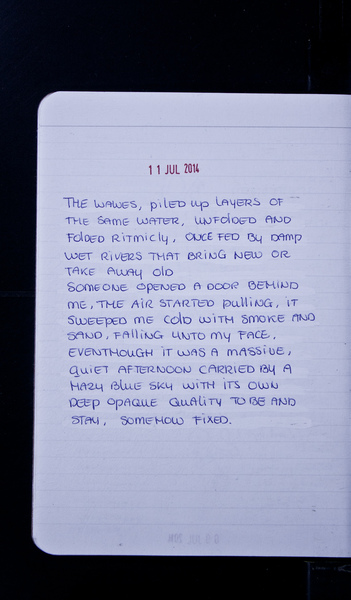 11 JUL 2014
THE WAWES, PILED UP LAYERS OF
THE SAME WATER, UNFOLDED AND
FOLDED RITMICLY, ONCE FED BY DAMP
WET RIVERS THAT BRING NEW OR
TAKE AWAY OLD
SOMEONE OPENED A DOOR BEHIND
ME, THE AIR STARTED PULLING, IT
SWEEPED ME COLD WITH SMOKE AND
SAND, FALLING UNTO MY FACE,
EVENTHOUGH IT WAS A MASSIVE,
QUIET AFTERNOON CARRIED BY A
HAZY BLUE SKY WITH ITS OWN
DEEP OPAQUE QUALITY TO BE AND
STAY, SOMEHOW FIXED.